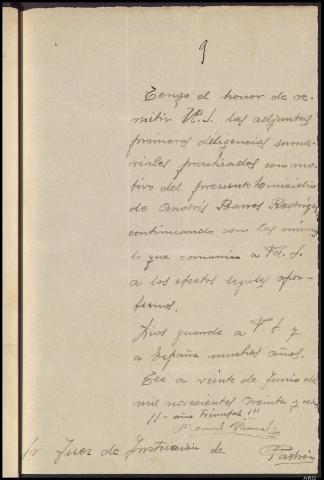 9
Tengo el honor de re-
mitir V.S. las adjuntas
primeras diligencias suma-
riales practicadas con mo-
tivo del presunto homicidio
de Andrés Barros Rodriguez
continuando con las mismas
lo que comunico a Vd. S.
a los efectos legales opor-
tunos.
Dios guarde a V. S. y
a España muchos años.
Teo a veinte de Junio de
mil novecientos treinta y ocho
II - año triunfal!!!
Manuel
Sr Juez de Instruccion de Padrón
ARQ